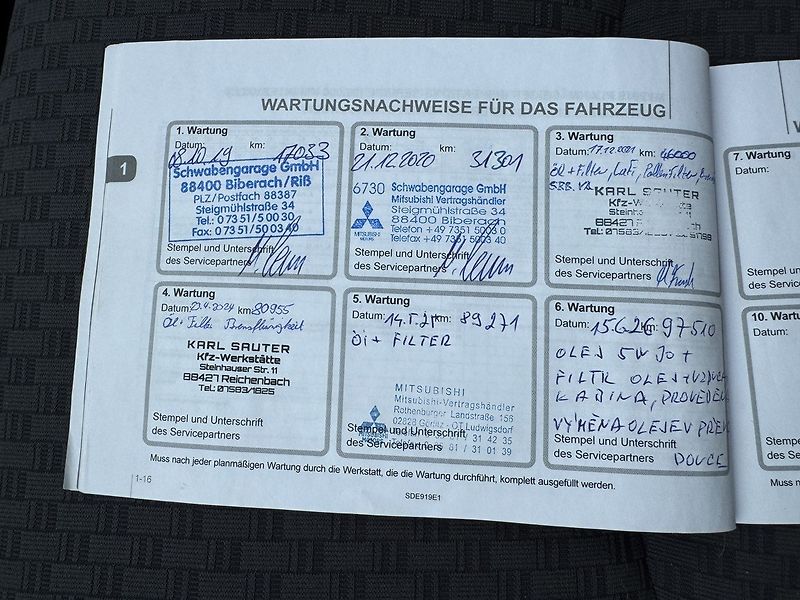 WARTUNGSNACHWEISE FÜR DAS FAHRZEUG
1
1. Wartung
Datum: 08.10.19 km: 17033
Schwabengarage GmbH
88400 Biberach/Riß
PLZ/Postfach 88387
Steigmühlstraße 34
Tel.: 0 73 51/5 00 30
Fax: 0 73 51/5 00 3 40
Stempel und Unterschrift
des Servicepartners
2. Wartung
Datum: km:
21.12.2020 31301
6730 Schwabengarage GmbH
Mitsubishi Vertragshändler
Steigmühlstraße 34
88400 Biberach
Telefon +49 7351 5003 0
Telefax +49 7351 5003 40
MITSUBISHI
MOTORS
Stempel und Unterschrift
des Servicepartners
3. Wartung
Datum: 17.12.2021 km: 46000
Öl + Filter, Luft, Pollenfilter,
KARL SAUTER
Kfz-
88427
Tel.: 07583/
Stempel und Unterschrift
des Servicepartners
4. Wartung
Datum: .4.2024 km: 80955
Öl + Filter Bremsflüssigkeit
KARL SAUTER
Kfz-Werkstätte
Steinhauser Str. 11
88427 Reichenbach
Tel.: 07583/1825
Stempel und Unterschrift
des Servicepartners
5. Wartung
Datum: km: 89271
Öl + FILTER
MITSUBISHI
Mitsubishi-Vertragshändler
Rothenburger Landstraße 156
02828 Görlitz - OT Ludwigsdorf
31 42 35
/ 31 01 39
Stempel und Unterschrift
des Servicepartners
6. Wartung
Datum: km: 97510
OLEJ 5W30 +
FILTR OLEJ+VZDUCH
KABINA, PROVEDENA
VÝMĚNA OLEJE V PŘEV
Stempel und Unterschrift
des Servicepartners
Muss nach jeder planmäßigen Wartung durch die Werkstatt, die die Wartung durchführt, komplett ausgefüllt werden.
1-16
SDE919E1
W
7. Wartung
Datum:
Stempel und
des Service
10. Wartung
Datum:
Stempel
des Serv
Muss n